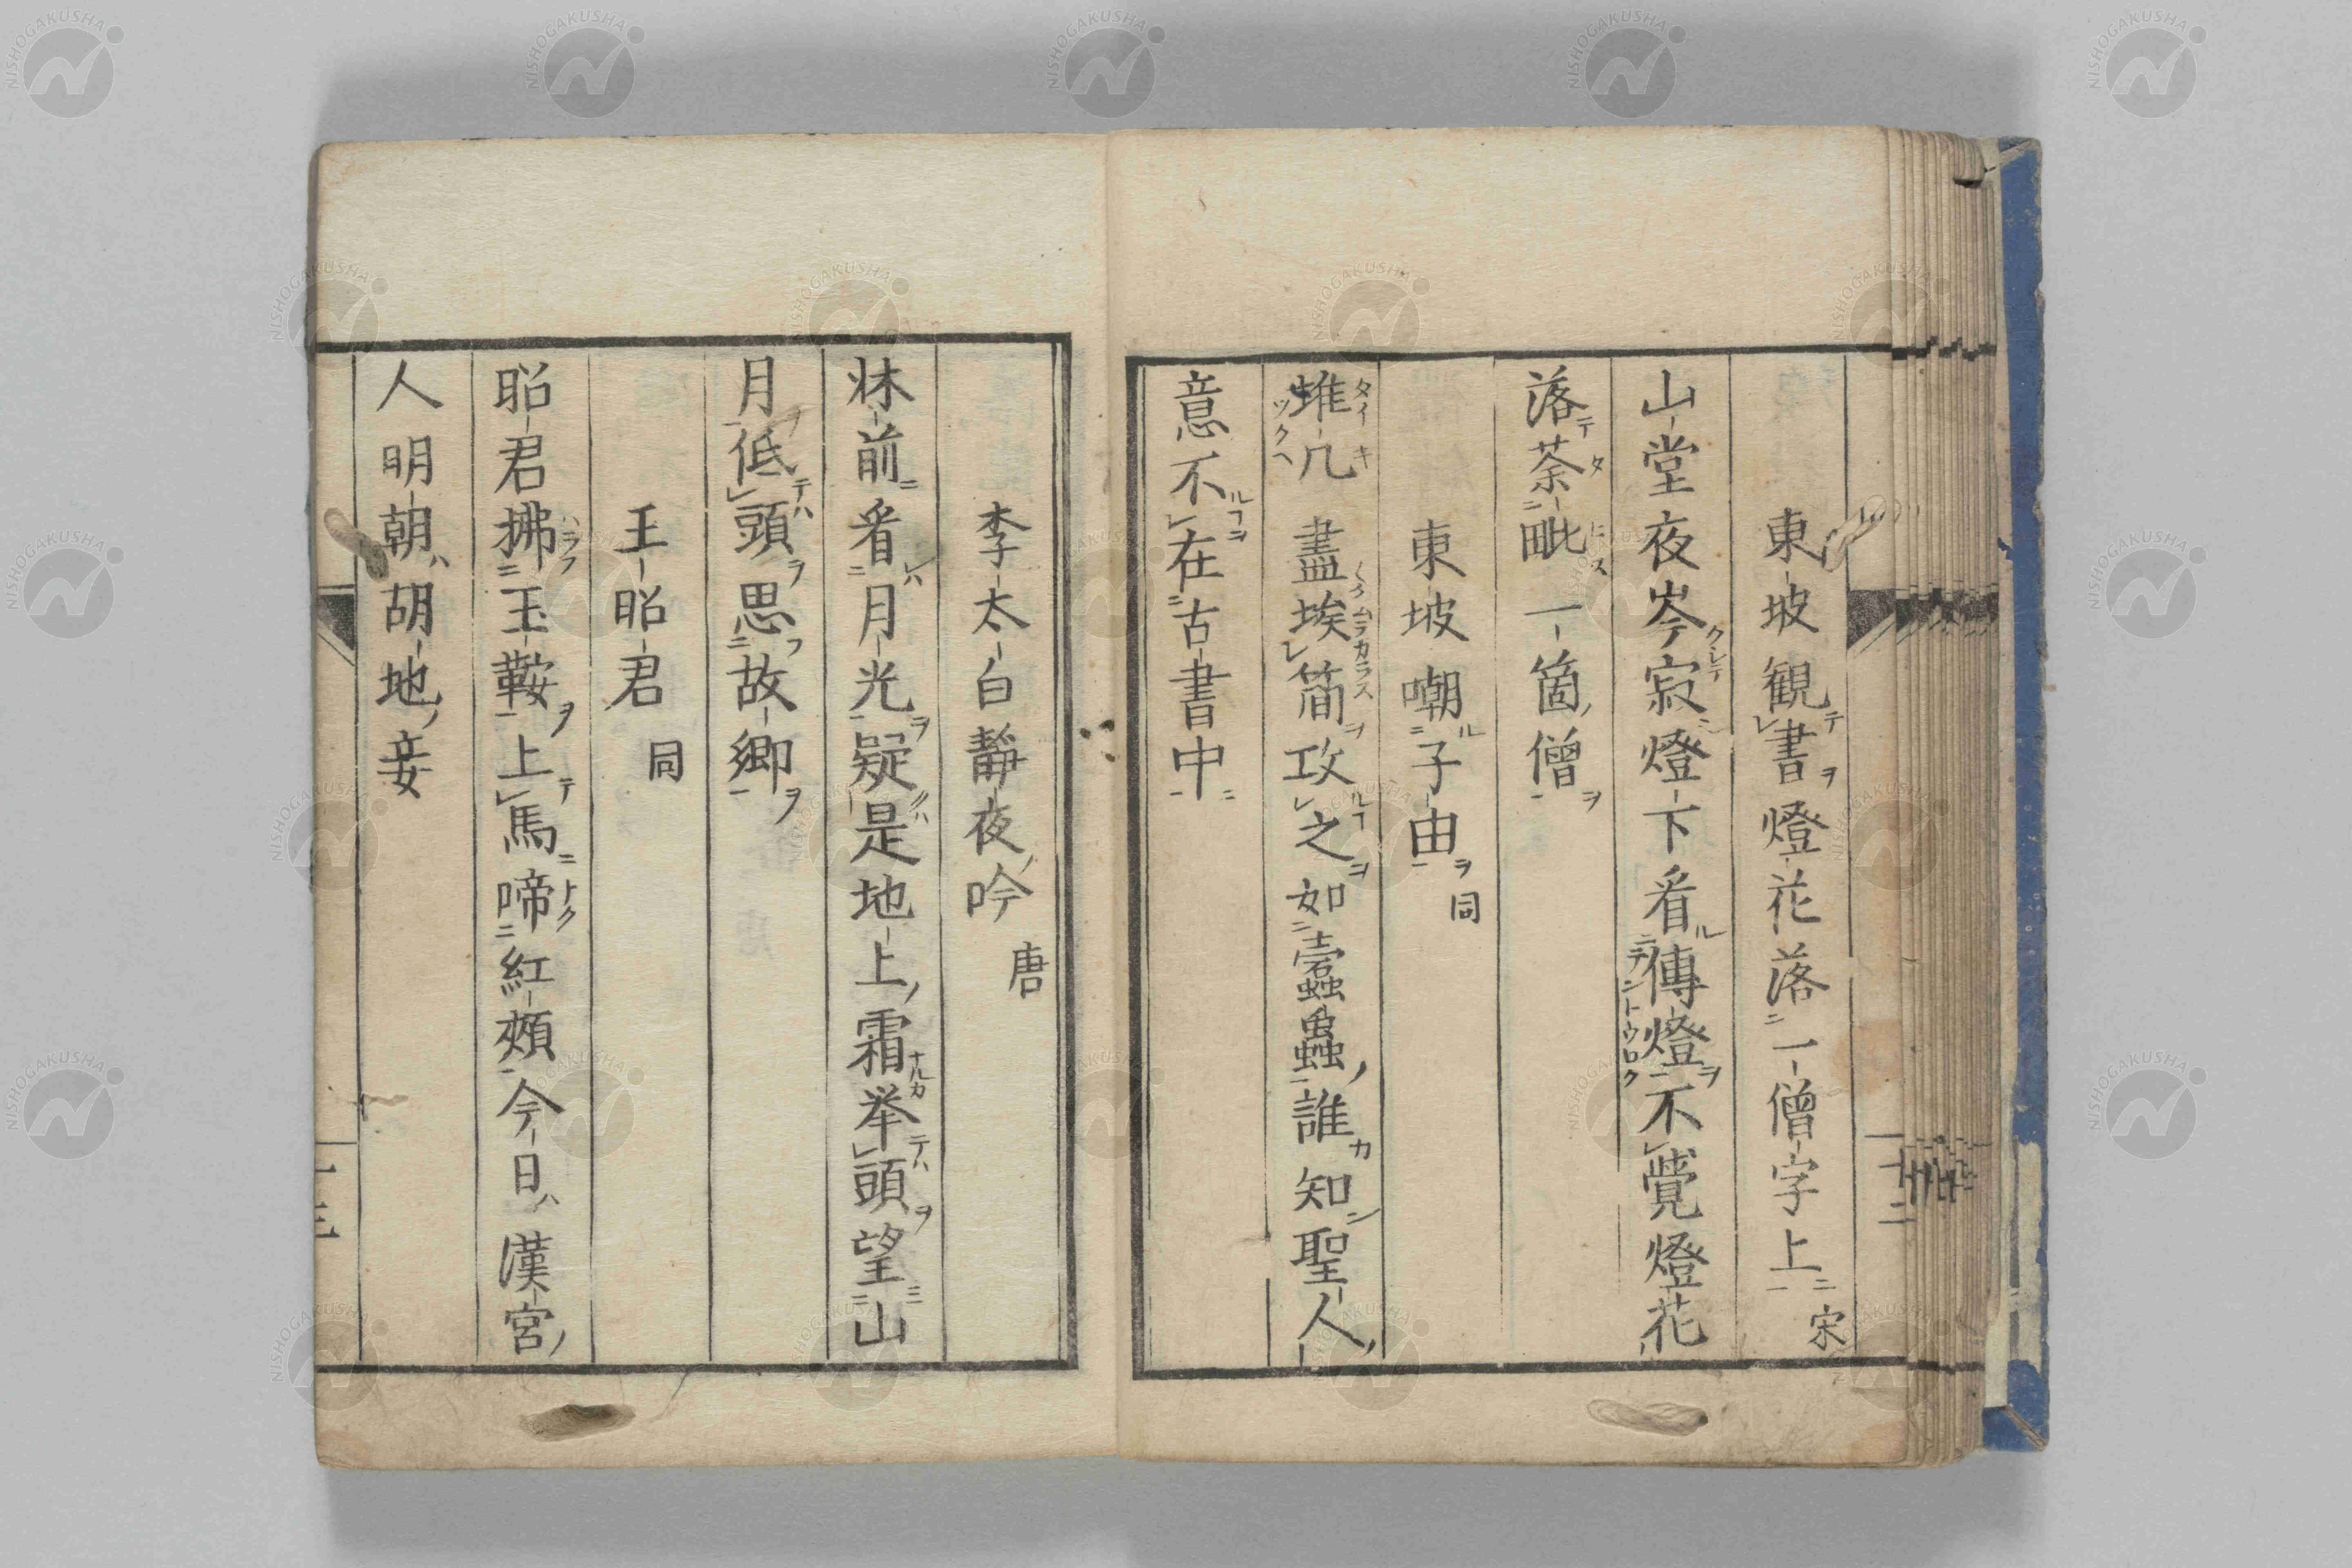 東坡観書燈花落一僧字上 宋
山堂夜岑寂燈下看傳燈不覺燈花
落荼毗一箇僧
東坡嘲子由 同
堆几盡埃簡攻之如蠹蟲誰知聖人
意不在古書中
李太白靜夜吟 唐
牀前看月光疑是地上霜挙頭望山
月低頭思故郷
王昭君 同
昭君拂玉鞍上馬啼紅頰今日漢宮
人明朝胡地妾